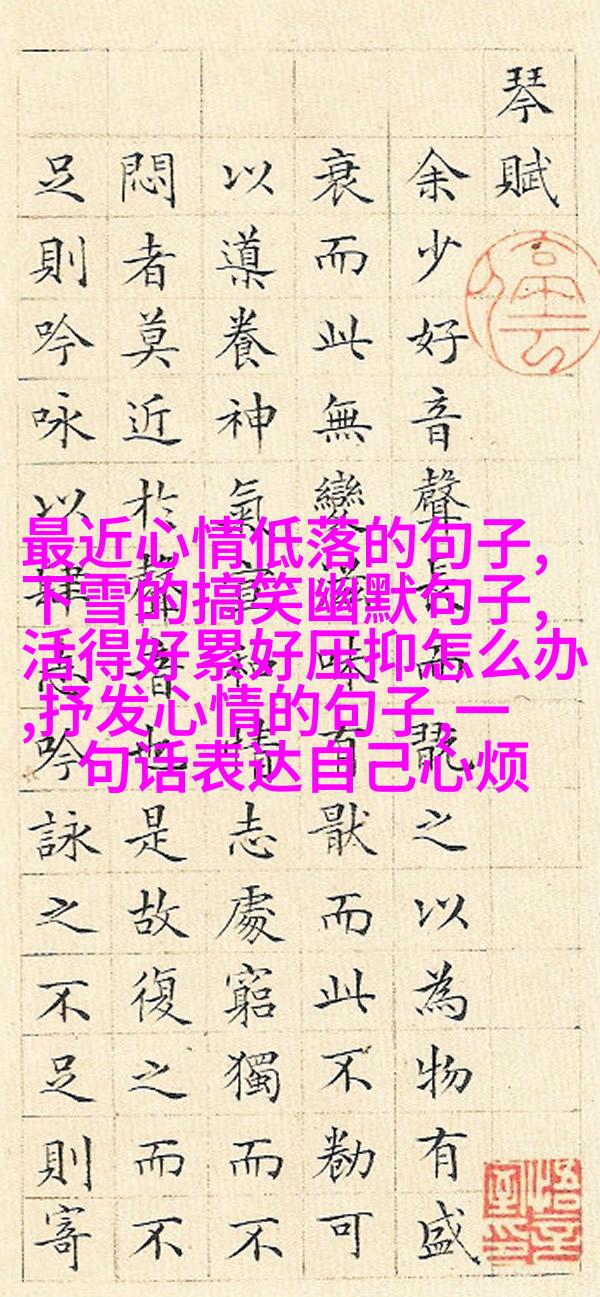 琴賦
余少好音聲長而翫之以為物有盛
衰而此無變滋味有猒而此不勌可
以導養神氣宣和情志處窮獨而不
悶者莫近於聲音也是故復之而不
足則吟咏以肆志吟詠之不足則寄
最近心情低落的句子,
下雪的搞笑幽默句子,
活得好累好压抑怎么办
,抒发心情的句子,一
句话表达自己心烦